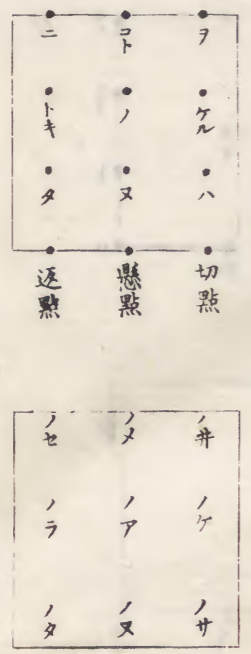 ヲ
ケル
ハ
切點
コト
ノ
ヌ
懸點
ニ
トキ
タ
返點
ノ井
ノケ
ノサ
ノメ
ノア
ノヌ
ノセ
ノラ
ノタ